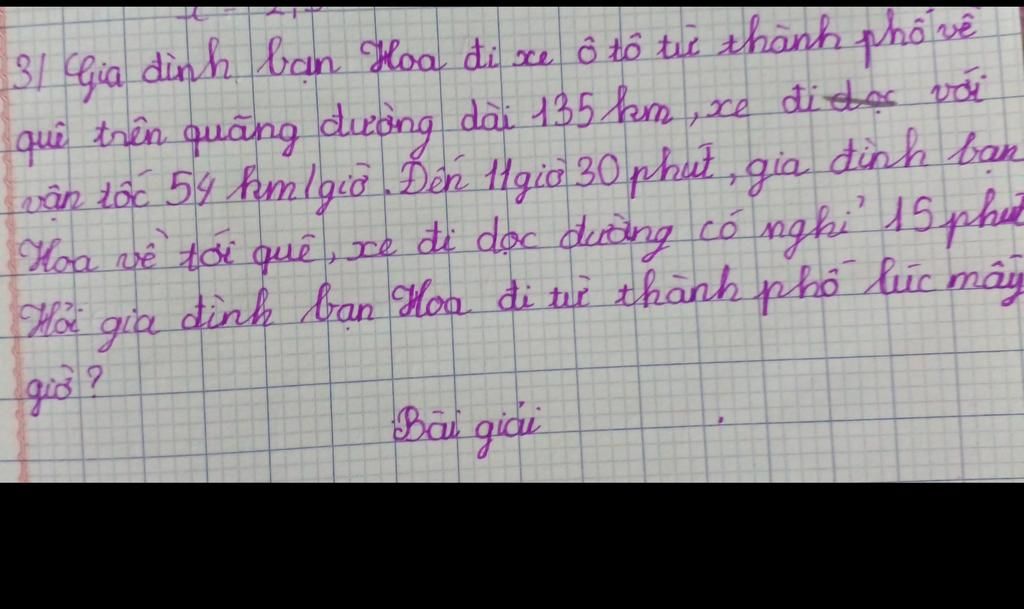 3/ Gia đình bạn Hoa đi xe ô tô từ thành phố về
quê trên quãng đường dài 135 km, xe đi dọc với
vận tốc 54 km/giờ. Đến 11 giờ 30 phút, gia đình bạn
Hoa về tới quê, xe đi dọc đường có nghỉ 15 phút
Hỏi gia đình bạn Hoa đi từ thành phố lúc mấy
giờ?
Bài giải